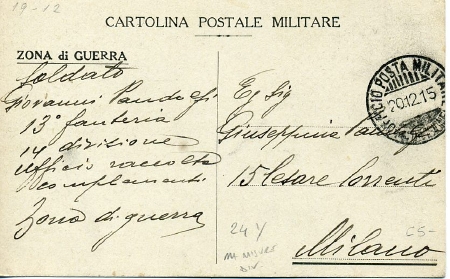 19-12
CARTOLINA POSTALE MILITARE
ZONA di GUERRA
Soldato
Giovanni
13° fanteria
14 divisione
ufficio raccolta
complementi
Zona di guerra
UFFICIO POSTA MILITARE
20.12.15
Eg Sig
Giuseppina
15 Cesare Correnti
Milano
24 Y
C5-